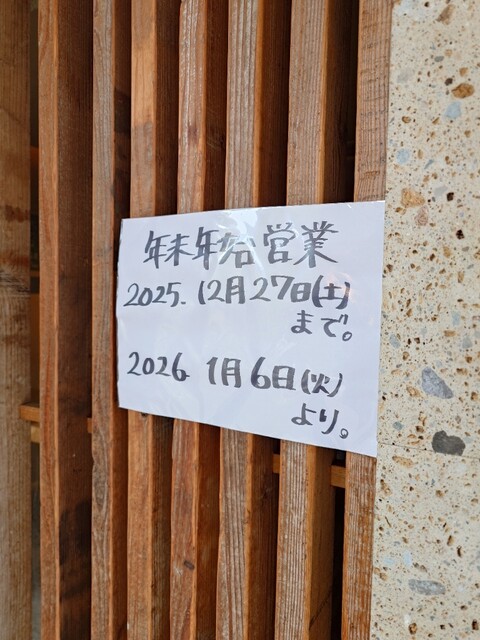 年末年始営業
2025. 12月27日(土)
まで。
2026 1月6日(火)
より。